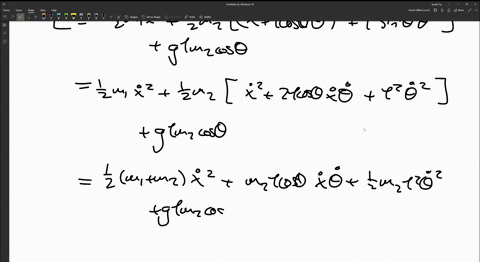 + glm₂cosθ
= ½m₁ẋ² + ½m₂[ẋ² + 2lcosθẋθ̇ + l²θ̇²]
+ glm₂cosθ
= ½(m₁+m₂)ẋ² + m₂lcosθẋθ̇ + ½m₂l²θ̇²
+glm₂cos